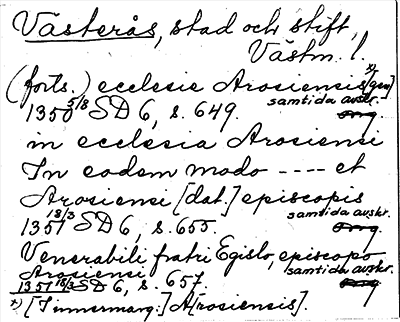 Västerås, stad och stift,
Västm. l.
(forts.) ecclesie Arosiensis x) [gen]
1350 5/8 SD 6, s. 649. samtida avskr.
in ecclesia Arosiensi
In eodem modo ---- et
Arosiensi [dat.] episcopis
1351 18/3 SD 6, s. 655. samtida avskr.
Venerabili fratri Egislo, episcopo
Arosiensi
1351 18/3 SD 6, s. 657. samtida avskr.
x) [I innermarg.:] A[rosiensis].